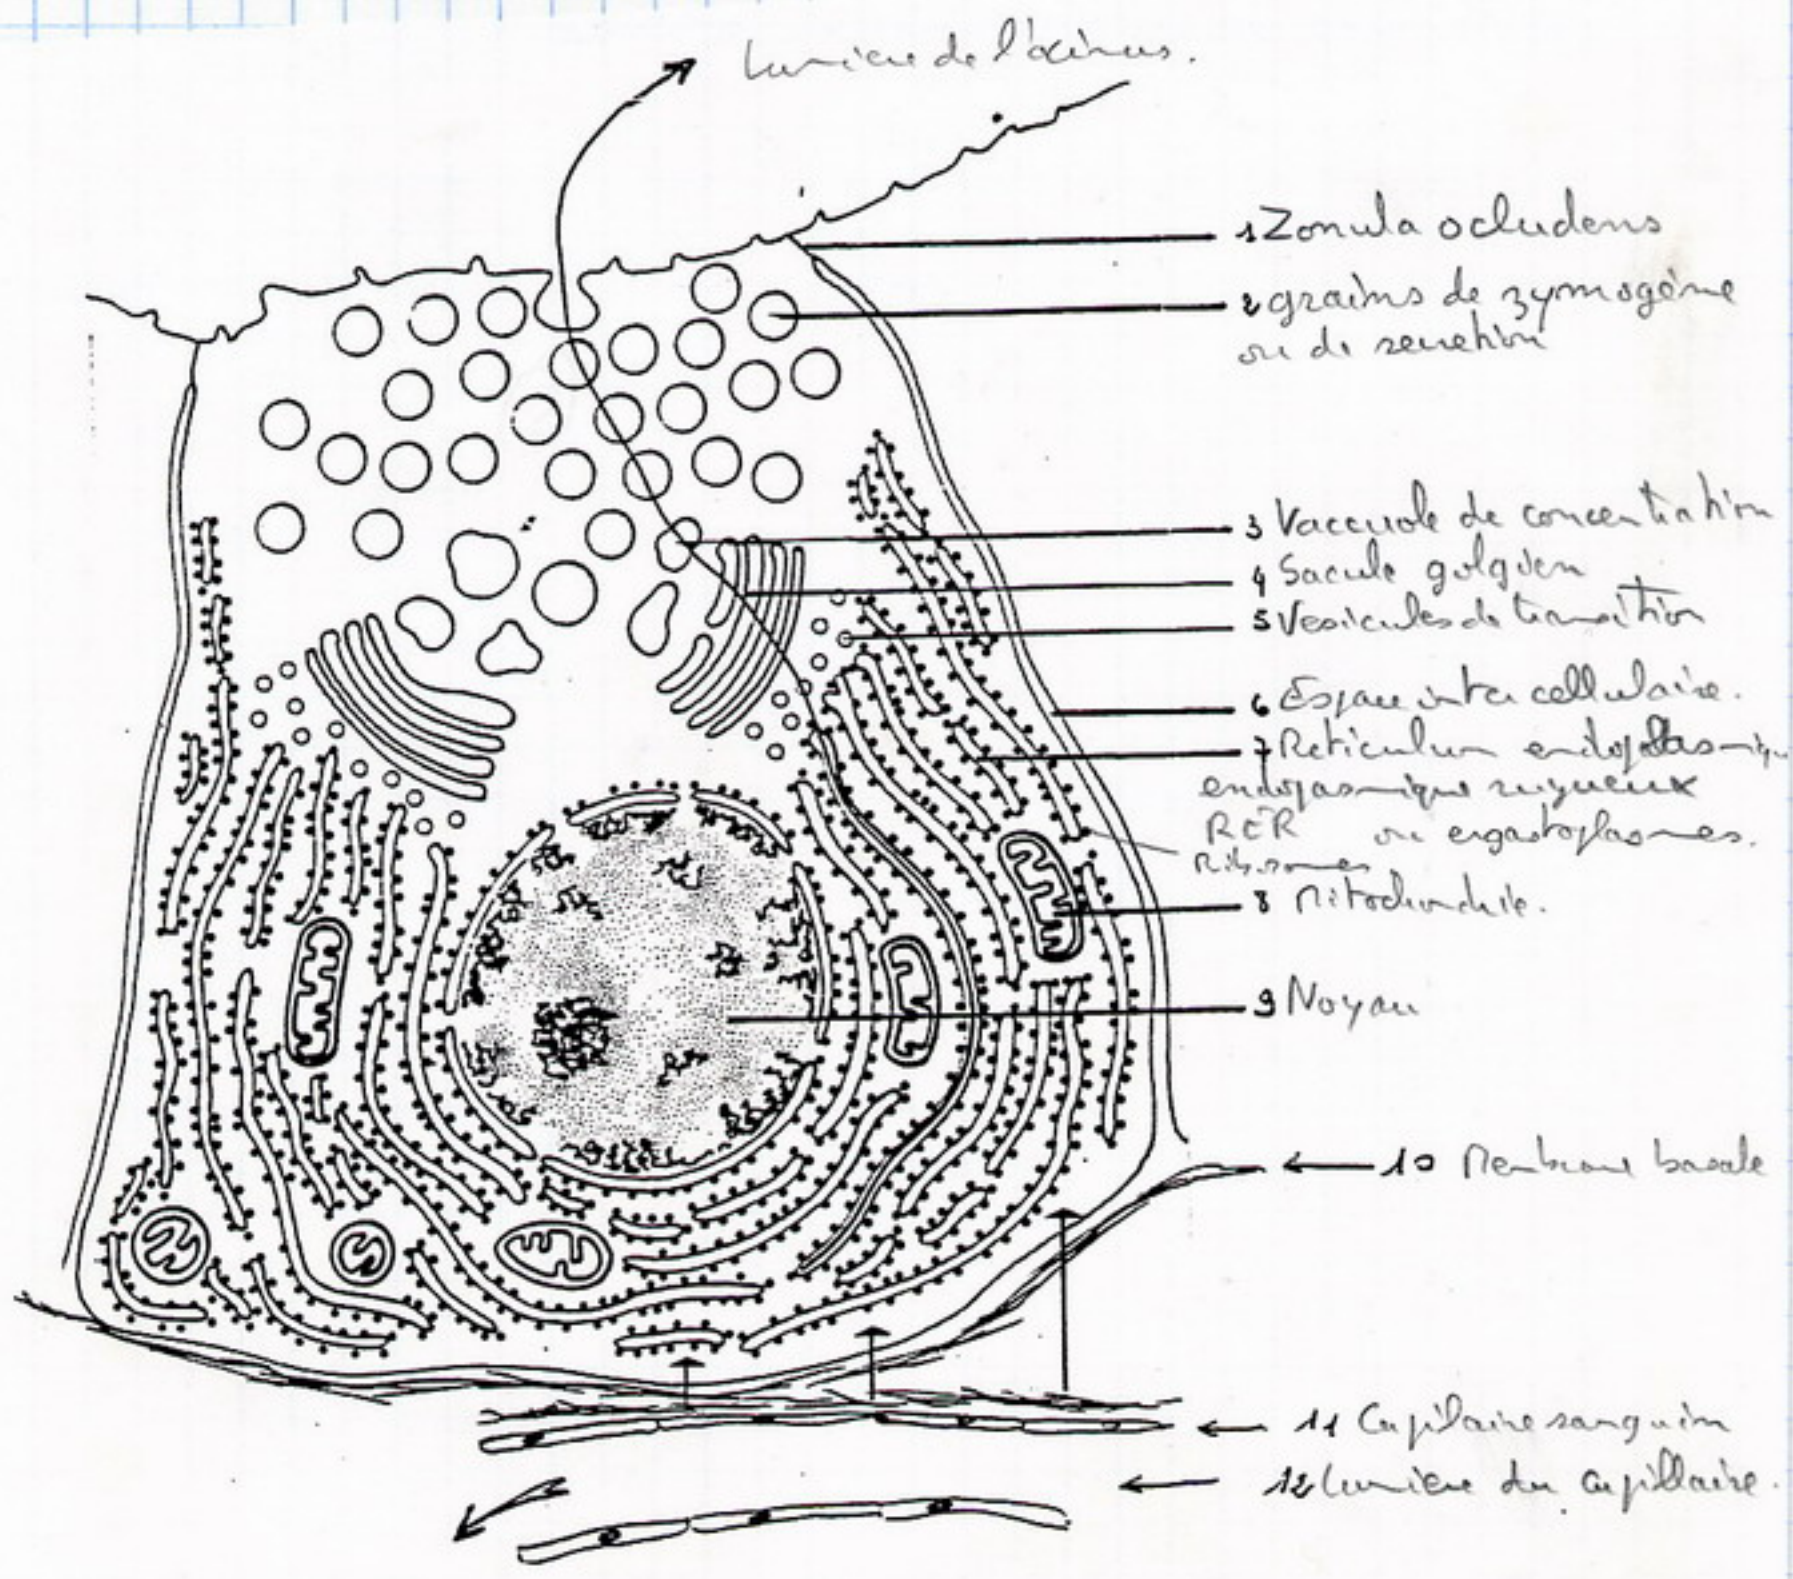 Lumiere de l'acinus.
1 Zonula ocludens
2 grains de zymogéne
ou de secretion
3 Vaccuole de concentration
4 Sacule golgien
5 Vesicules de transition
6 Espace inter cellulaire.
7 Reticulum endoplasmique
endopasmique rugueux
RER ou ergastoplasmes.
Ribosomes
8 Mitochondrie.
9 Noyau
10 Membrane basale
11 Capilaire sanguin
12 Lumiere du capillaire.